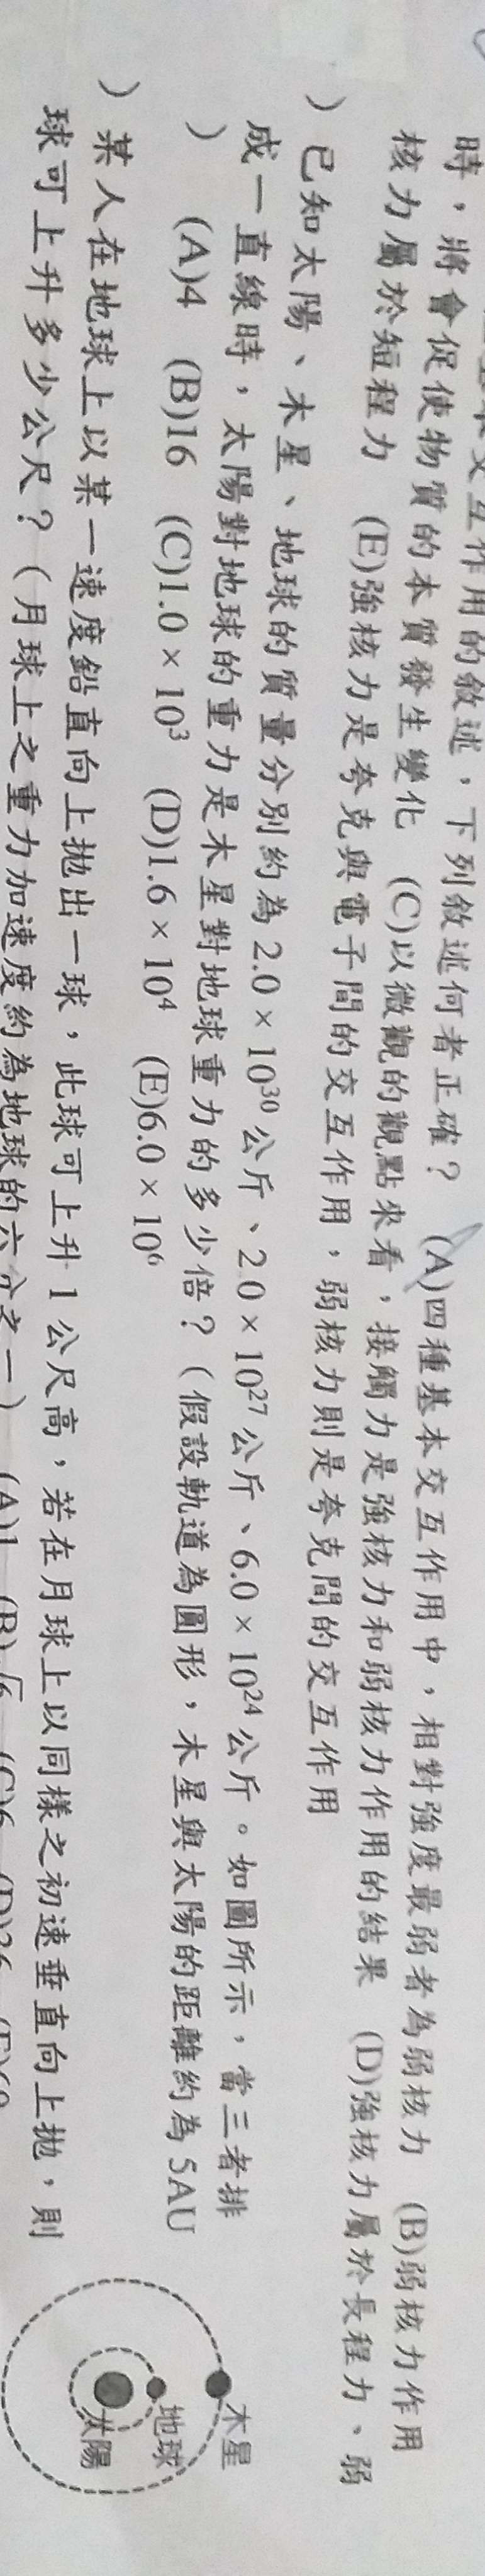 交互作用的敘述，下列敘述何者正確？ (A)四種基本交互作用中，相對強度最弱者為弱核力 (B)弱核力作用
時，將會促使物質的本質發生變化 (C)以微觀的觀點來看，接觸力是強核力和弱核力作用的結果 (D)強核力屬於長程力、弱
核力屬於短程力 (E)強核力是夸克與電子間的交互作用，弱核力則是夸克間的交互作用
）已知太陽、木星、地球的質量分別約為 2.0 × 10³⁰ 公斤、2.0 × 10²⁷ 公斤、6.0 × 10²⁴ 公斤。如圖所示，當三者排
成一直線時，太陽對地球的重力是木星對地球重力的多少倍？（假設軌道為圓形，木星與太陽的距離約為 5AU
） (A)4 (B)16 (C)1.0 × 10³ (D)1.6 × 10⁴ (E)6.0 × 10⁶
木星
地球
太陽
）某人在地球上以某一速度鉛直向上拋出一球，此球可上升 1 公尺高，若在月球上以同樣之初速垂直向上拋，則
球可上升多少公尺？（月球上之重力加速度約為地球的六分之一） (A)1 (B)√6 (C)6 (D)36